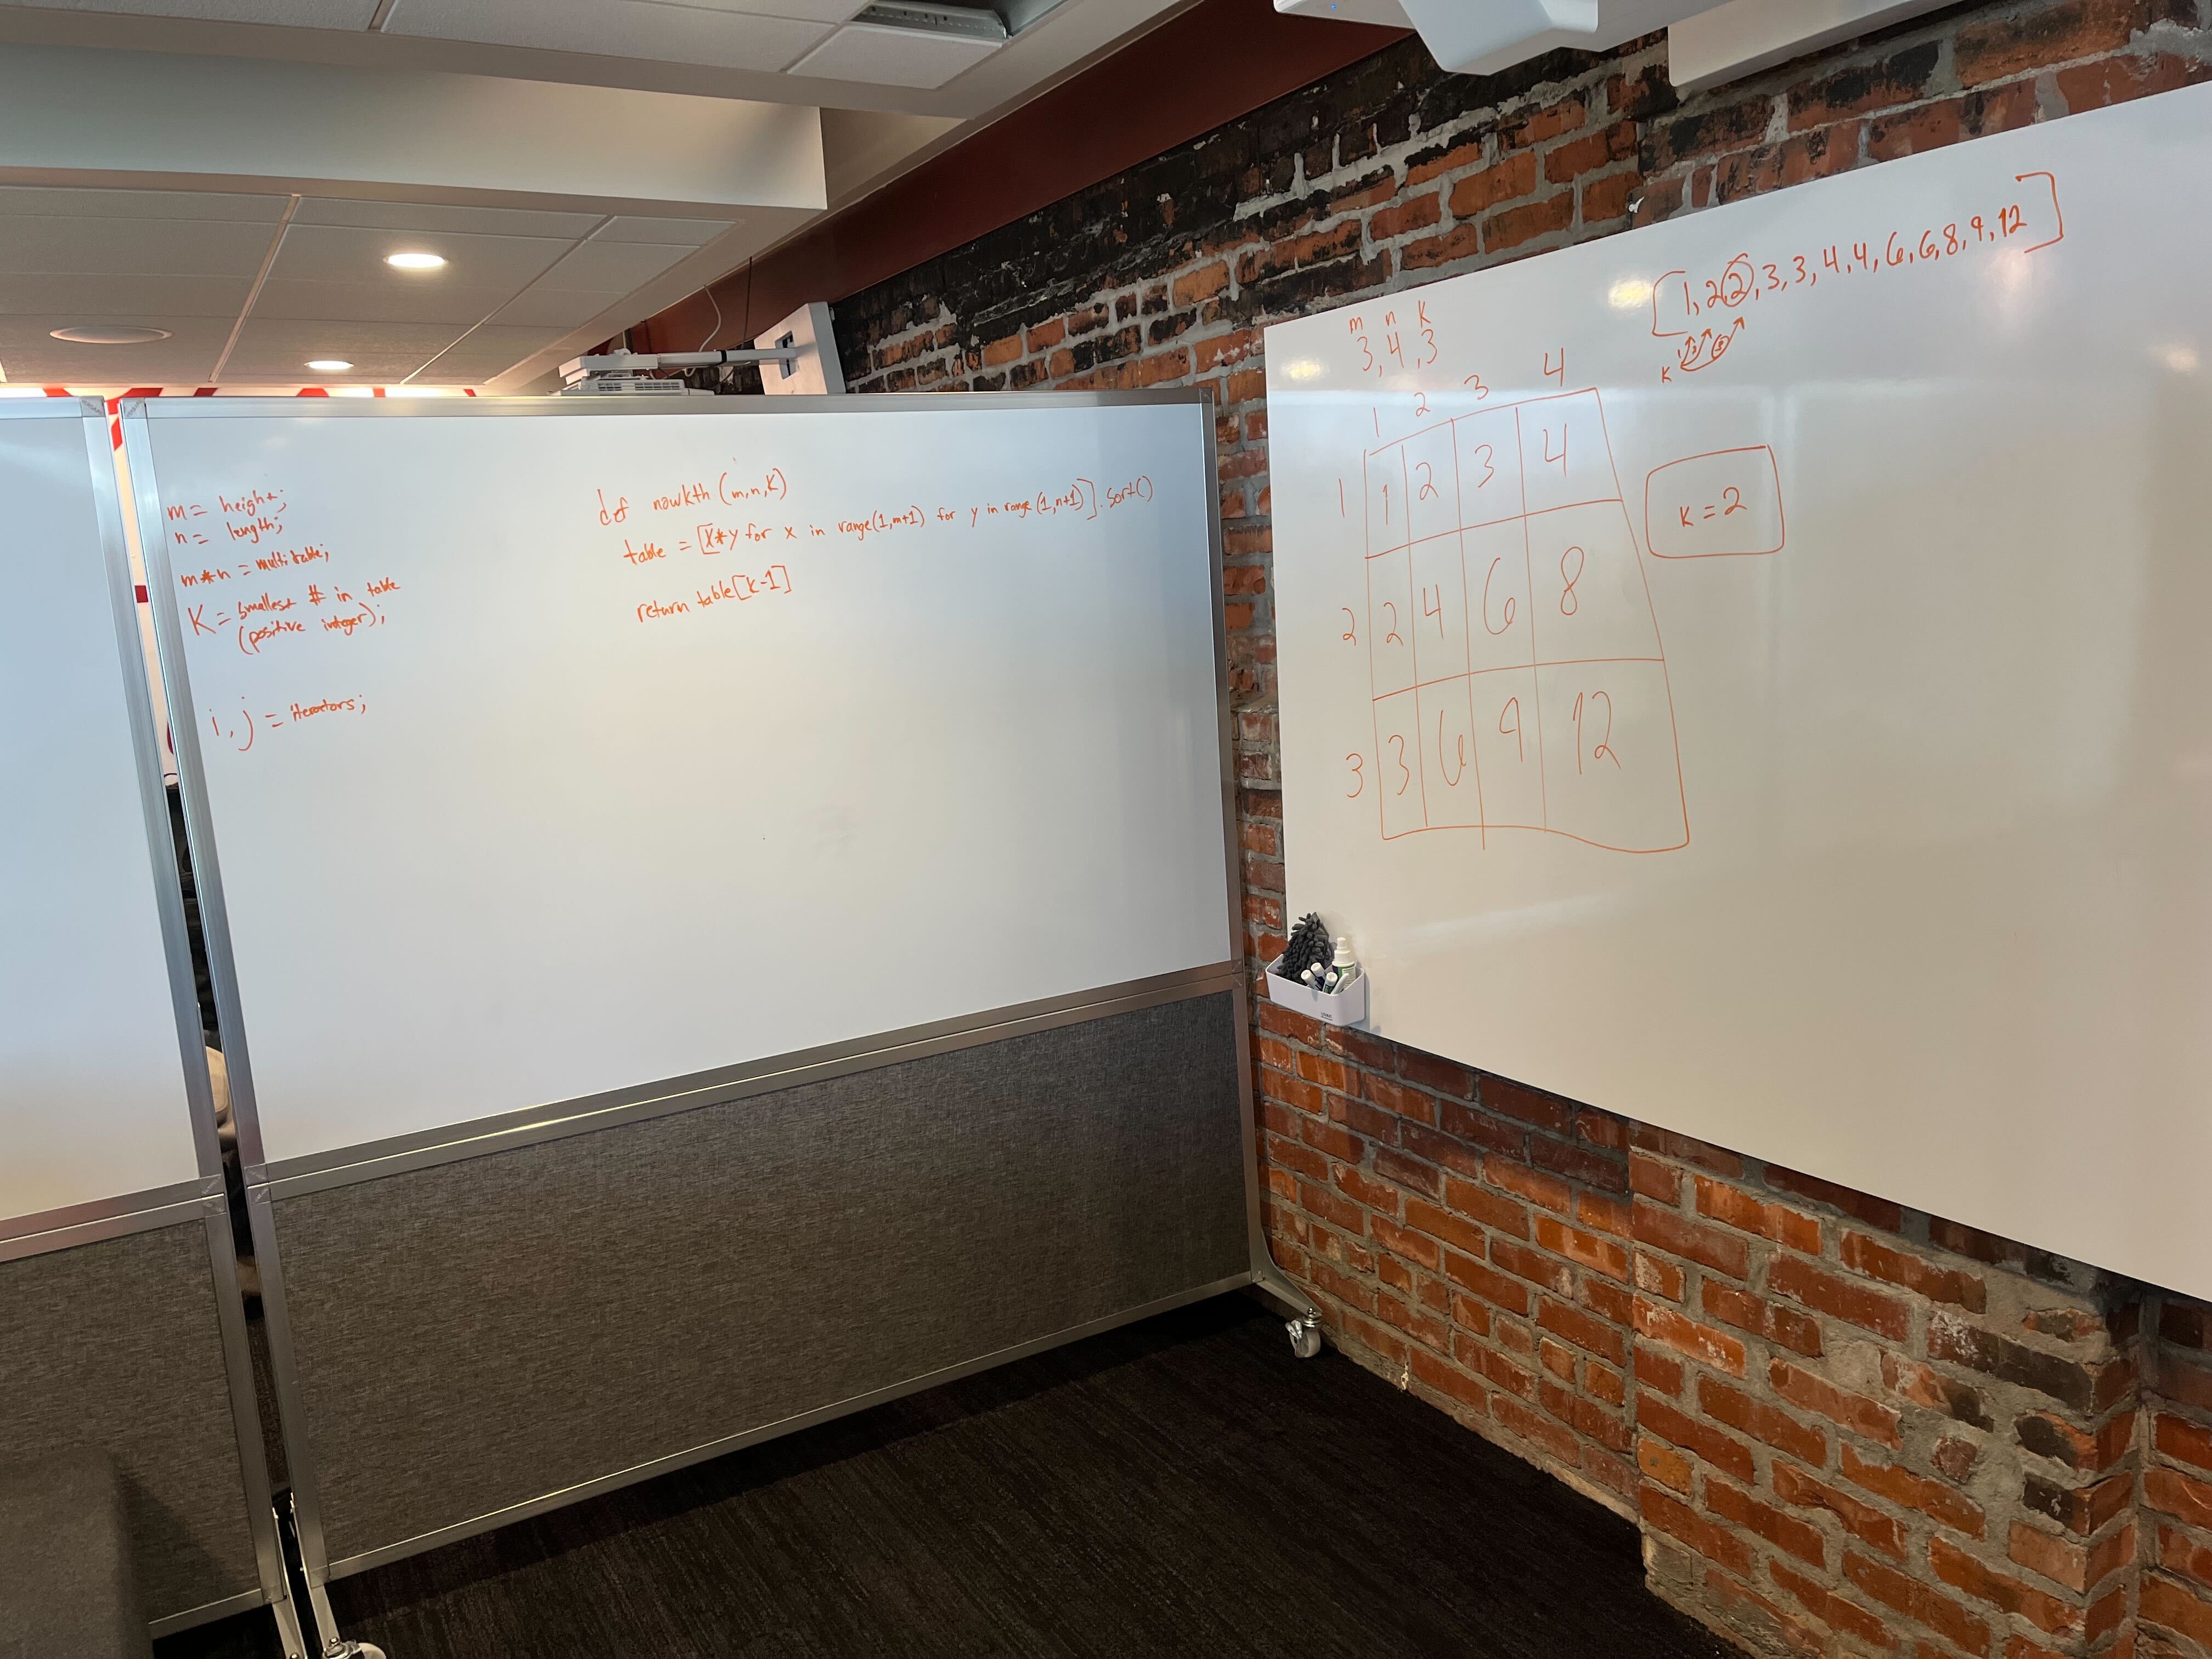 m = height;
n = length;
m*n = multi table;
K = smallest # in table
(positive integer);
i, j = iterators;
def nawkth (m,n,K)
table = [X*y for x in range(1,m+1) for y in range(1,n+1)].sort()
return table[k-1]
m n K
3,4,3
1 2 3 4
1 1 2 3 4
2 2 4 6 8
3 3 6 9 12
[1,2 2,3,3,4,4,6,6,8,9,12]
K 1 2 3
K = 2